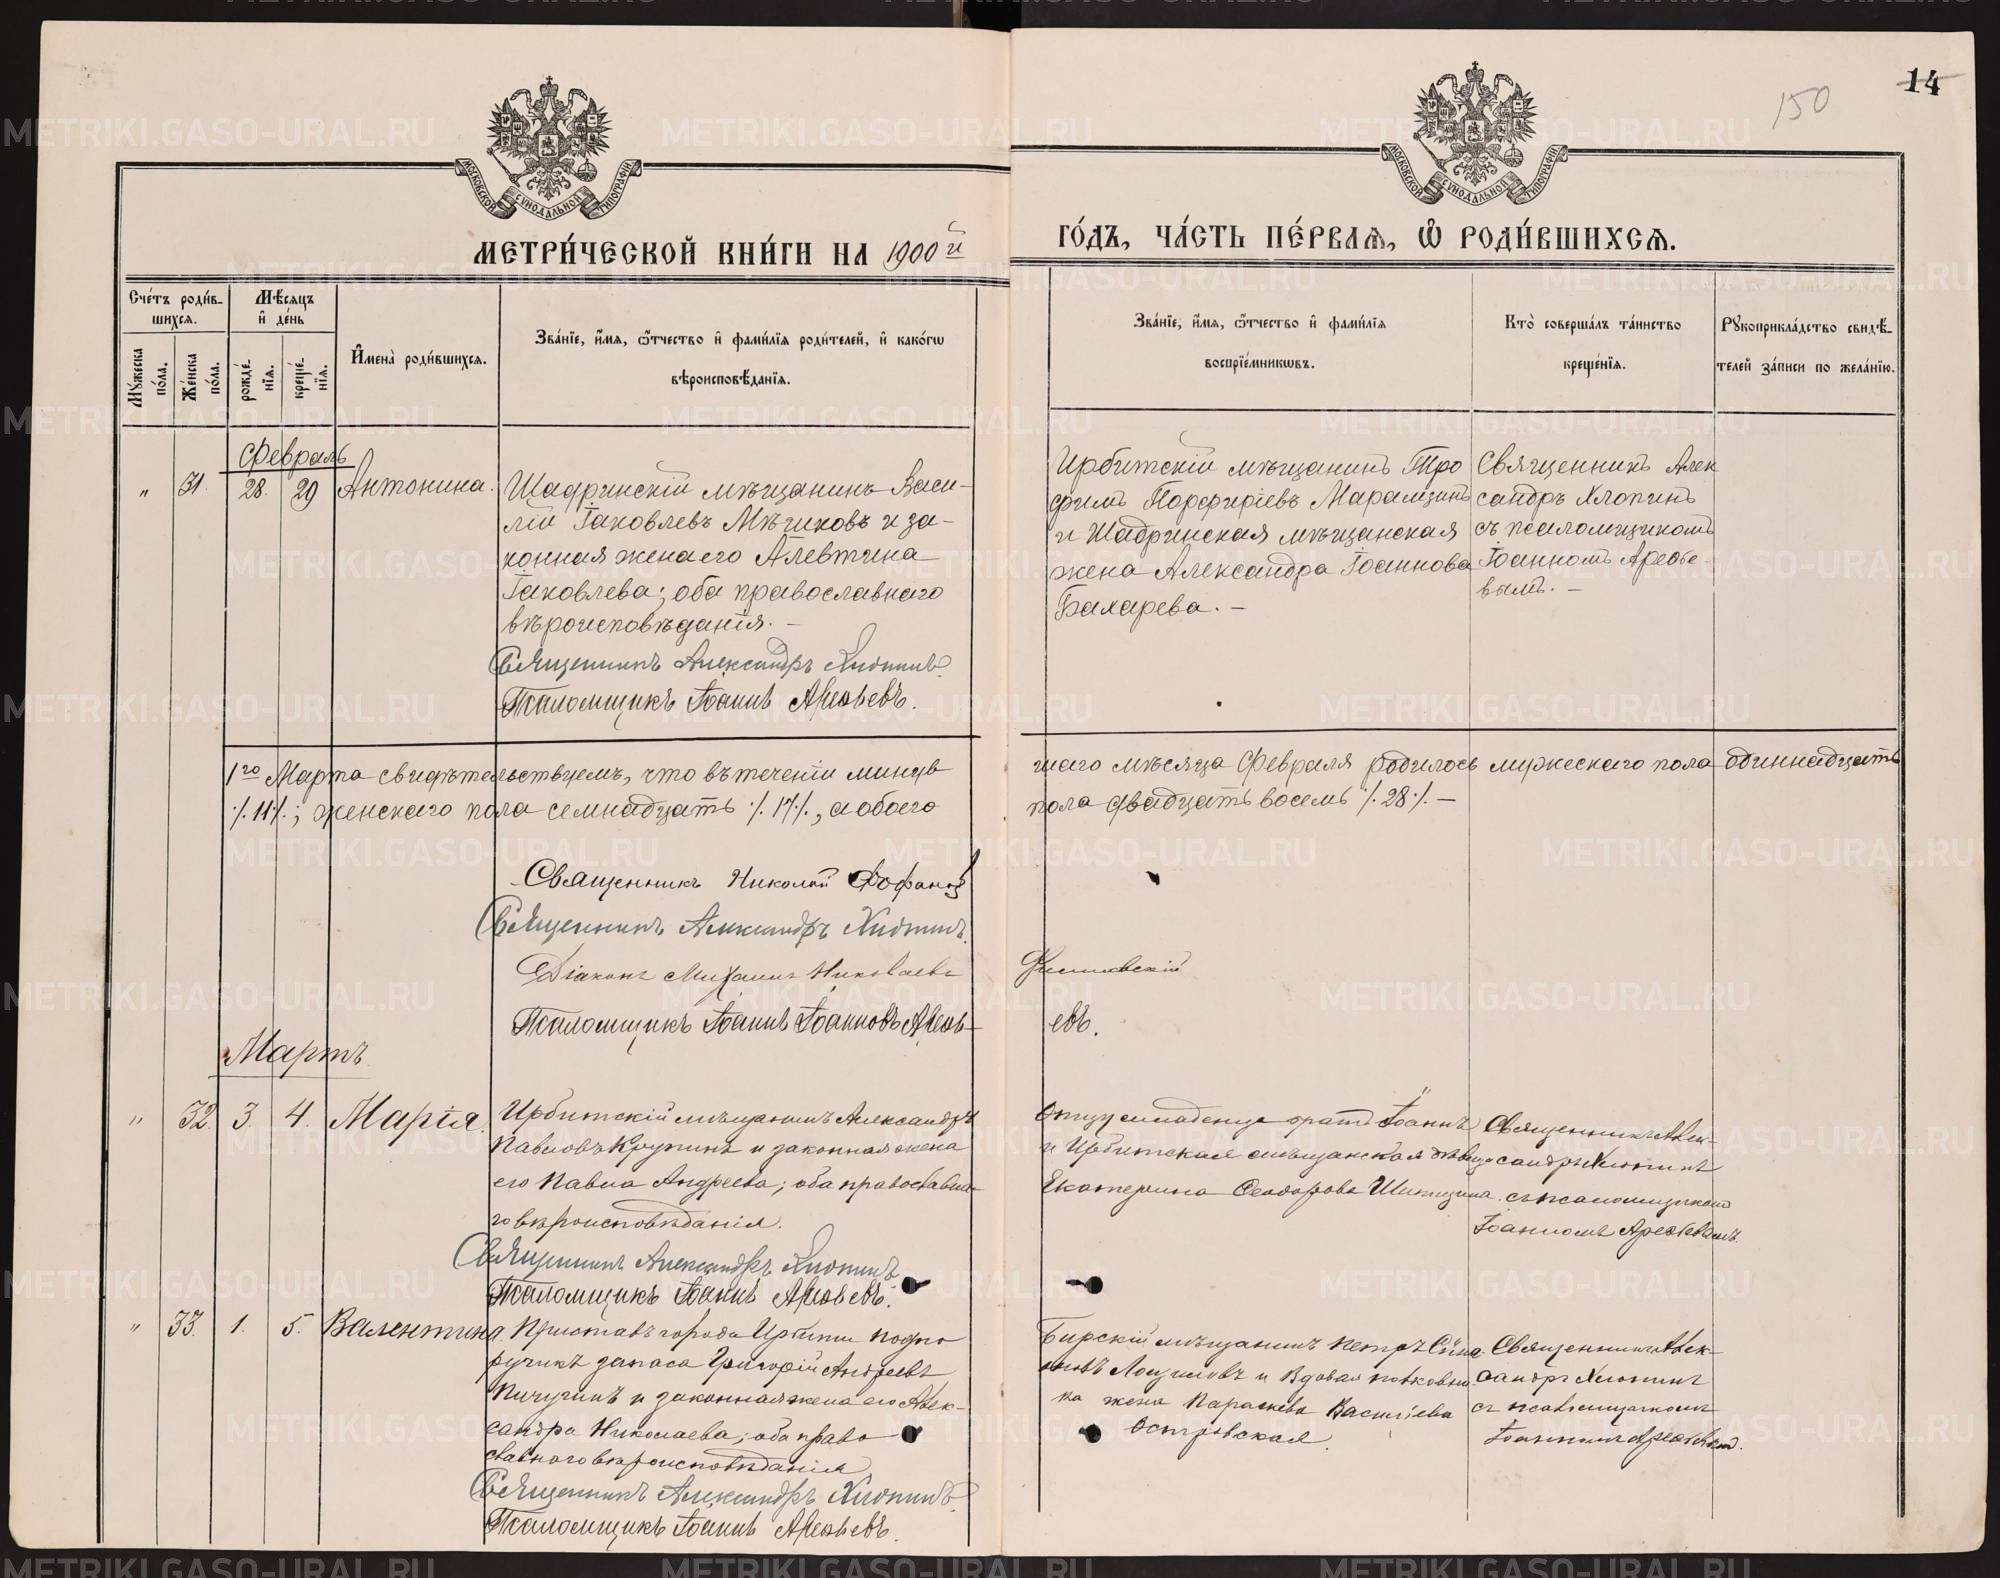 14
150
МОСКОВСКОЙ СУНОДАЛЬНОЙ ТИПОГРАФІИ.
МОСКОВСКОЙ СУНОДАЛЬНОЙ ТИПОГРАФІИ.
МЕТРИ́ЧЕСКОЙ КНИ́ГИ НА 1900й
ГО́ДЪ, ЧА́СТЬ ПЕ́РВАѦ, Ѽ РОДИ́ВШИХСѦ.
Сче́тъ роди́в-
шихсѧ.
Мꙋ́жеска по́ла.
Же́нска по́ла.
Мѣ́сѧцъ
и҆ де́нь
рожде́нїѧ.
креще́нїѧ.
И҆мена̀ роди́вшихсѧ.
Зва́нїе, и҆́мѧ, ѻ҆́тчество и҆ фами́лїѧ роди́телей, и҆ како́гѡ
вѣроисповѣ́данїѧ.
Зва́нїе, и҆́мѧ, ѻ҆́тчество и҆ фами́лїѧ
воспрїе́мникѡвъ.
Кто̀ соверша́лъ та́инство
креще́нїѧ.
Рꙋкоприкла́дство свидѣ́-
телей за́писи по жела́нїю.
Февраль
" 31. 28. 29 Антонина.
Шадринскій мѣщанинъ Васи-
лій Іаковлевъ Мѣшковъ и за-
конная жена его Алевтина
Іаковлева; оба православнаго
вѣроисповѣданія. –
Священникъ Александръ Хлопинъ.
Псаломщикъ Іоаннъ Арефьевъ.
Ирбитскій мѣщанинъ Тро
фимъ Порфиріевъ Марамзинъ
и Шадринская мѣщанская
жена Александра Іоаннова
Бахарева. –
Священникъ Алек
сандръ Хлопинъ
съ псаломщикомъ
Іоанномъ Арефье-
вымъ. –
1го Марта свидѣтельствуемъ, что въ теченіи минув
шаго мѣсяца Февраля родилось мужескаго пола одиннадцать
/. 11 /.; женскаго пола семнадцать /. 17 /., а обоего
пола двадцать восемь /. 28 /. –
Священникъ Николай Фофановъ
Священникъ Александръ Хлопинъ.
Діаконъ Михаилъ Николаевъ
Псаломщикъ Іоаннъ Іоанновъ Арефь-
евъ.
Мартъ
" 32. 3. 4. Марія.
Ирбитскій мѣщанинъ Александръ
Павловъ Крупинъ и законная жена
его Павла Андреева; оба православна-
го вѣроисповѣданія.
Священникъ Александръ Хлопинъ.
Псаломщикъ Іоаннъ Арефьевъ.
Отцу младенца братъ Іоаннъ
и Ирбитская мѣщанская дѣвица
Екатерина Ѳеодорова Шипицина.
Священникъ Алек-
сандръ Хлопинъ
съ псаломщикомъ
Іоанномъ Арефьевымъ.
" 33. 1. 5. Валентина.
Приставъ города Ирбити подпо
ручикъ запаса Григорій Андреевъ
Пичугинъ и законная жена его Алек-
сандра Николаева; оба право
славнаго вѣроисповѣданія
Священникъ Александръ Хлопинъ.
Псаломщикъ Іоаннъ Арефьевъ.
Бирскій мѣщанинъ Петръ
и Вдовая полковни
ка жена Параскева Васильева
Островская.
Священникъ Алек-
сандръ Хлопинъ
съ псаломщикомъ
Іоанномъ Арефьевымъ.
METRIKI.GASO-URAL.RU